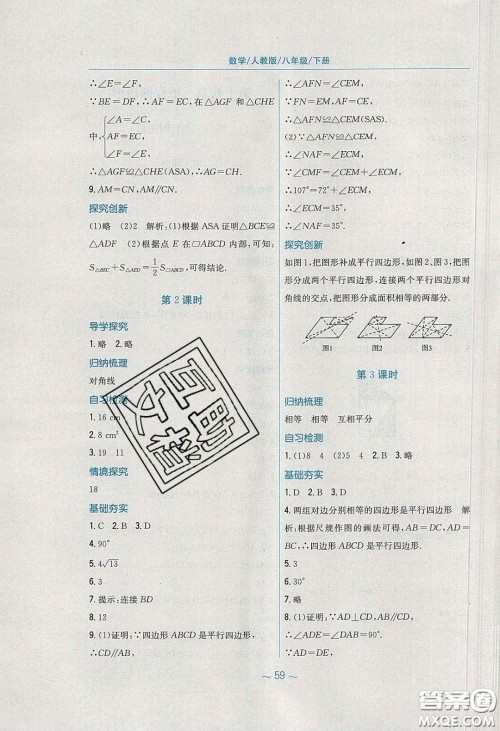 数学/人教版/八年级/下册
∴∠E=∠F,
∵BE=DF,∴AF=EC.在△AGF和△CHE
中,
∠A=∠C,
AF=EC,
∠F=∠E,
∴△AGF≌△CHE(ASA),∴AG=CH.
9.AM=CN,AM//CN.
探究创新
(1)略 (2)2 解析:(1)根据ASA证明△BCE≌
△ADF (2)根据点E在□ABCD内部,可知:
S△BEC+S△AED=1/2S□ABCD,可得结论.
第2课时
导学探究
1.略 2.略
归纳梳理
对角线
自习检测
1.16 cm
2.8 cm²
3.19 11
情境探究
18
基础夯实
1.C 2.B 3.D
4.90°
5.4√13
6.3
7.提示:连接BD
8.12
9.(1)证明:∵四边形ABCD是平行四边形,
∴CD//AB,
∴∠AFN=∠CEM,
∴△AFN≌△CEM(SAS).
(2)∵△AFN≌△CEM,
∴∠NAF=∠ECM,
∵∠CMF=∠CEM+∠ECM,
∴107°=72°+∠ECM,
∴∠ECM=35°,
∴∠NAF=35°.
探究创新
如图1,把图形补成平行四边形,如图2、图3,把图
形分成两个平行四边形,连接两个平行四边形对
角线的交点,把图形分成面积相等的两部分.
图1 图2 图3
第3课时
归纳梳理
相等 相等 互相平分
自习检测
1.(1)8 4 (2)5 4 2.B 3.D
基础夯实
4.两组对边分别相等的四边形是平行四边形 解
析:根据尺规作图的画法可得,AB=DC,AD=
BC,∴四边形ABCD是平行四边形.
5.3
6.30°
7.略
8.(1)证明:∵AD⊥CD,BE⊥AD,
∴∠ADE=∠DAB=90°.
∵DE=DA,
~59~
互助
文档
答案圈
MXQE.COM